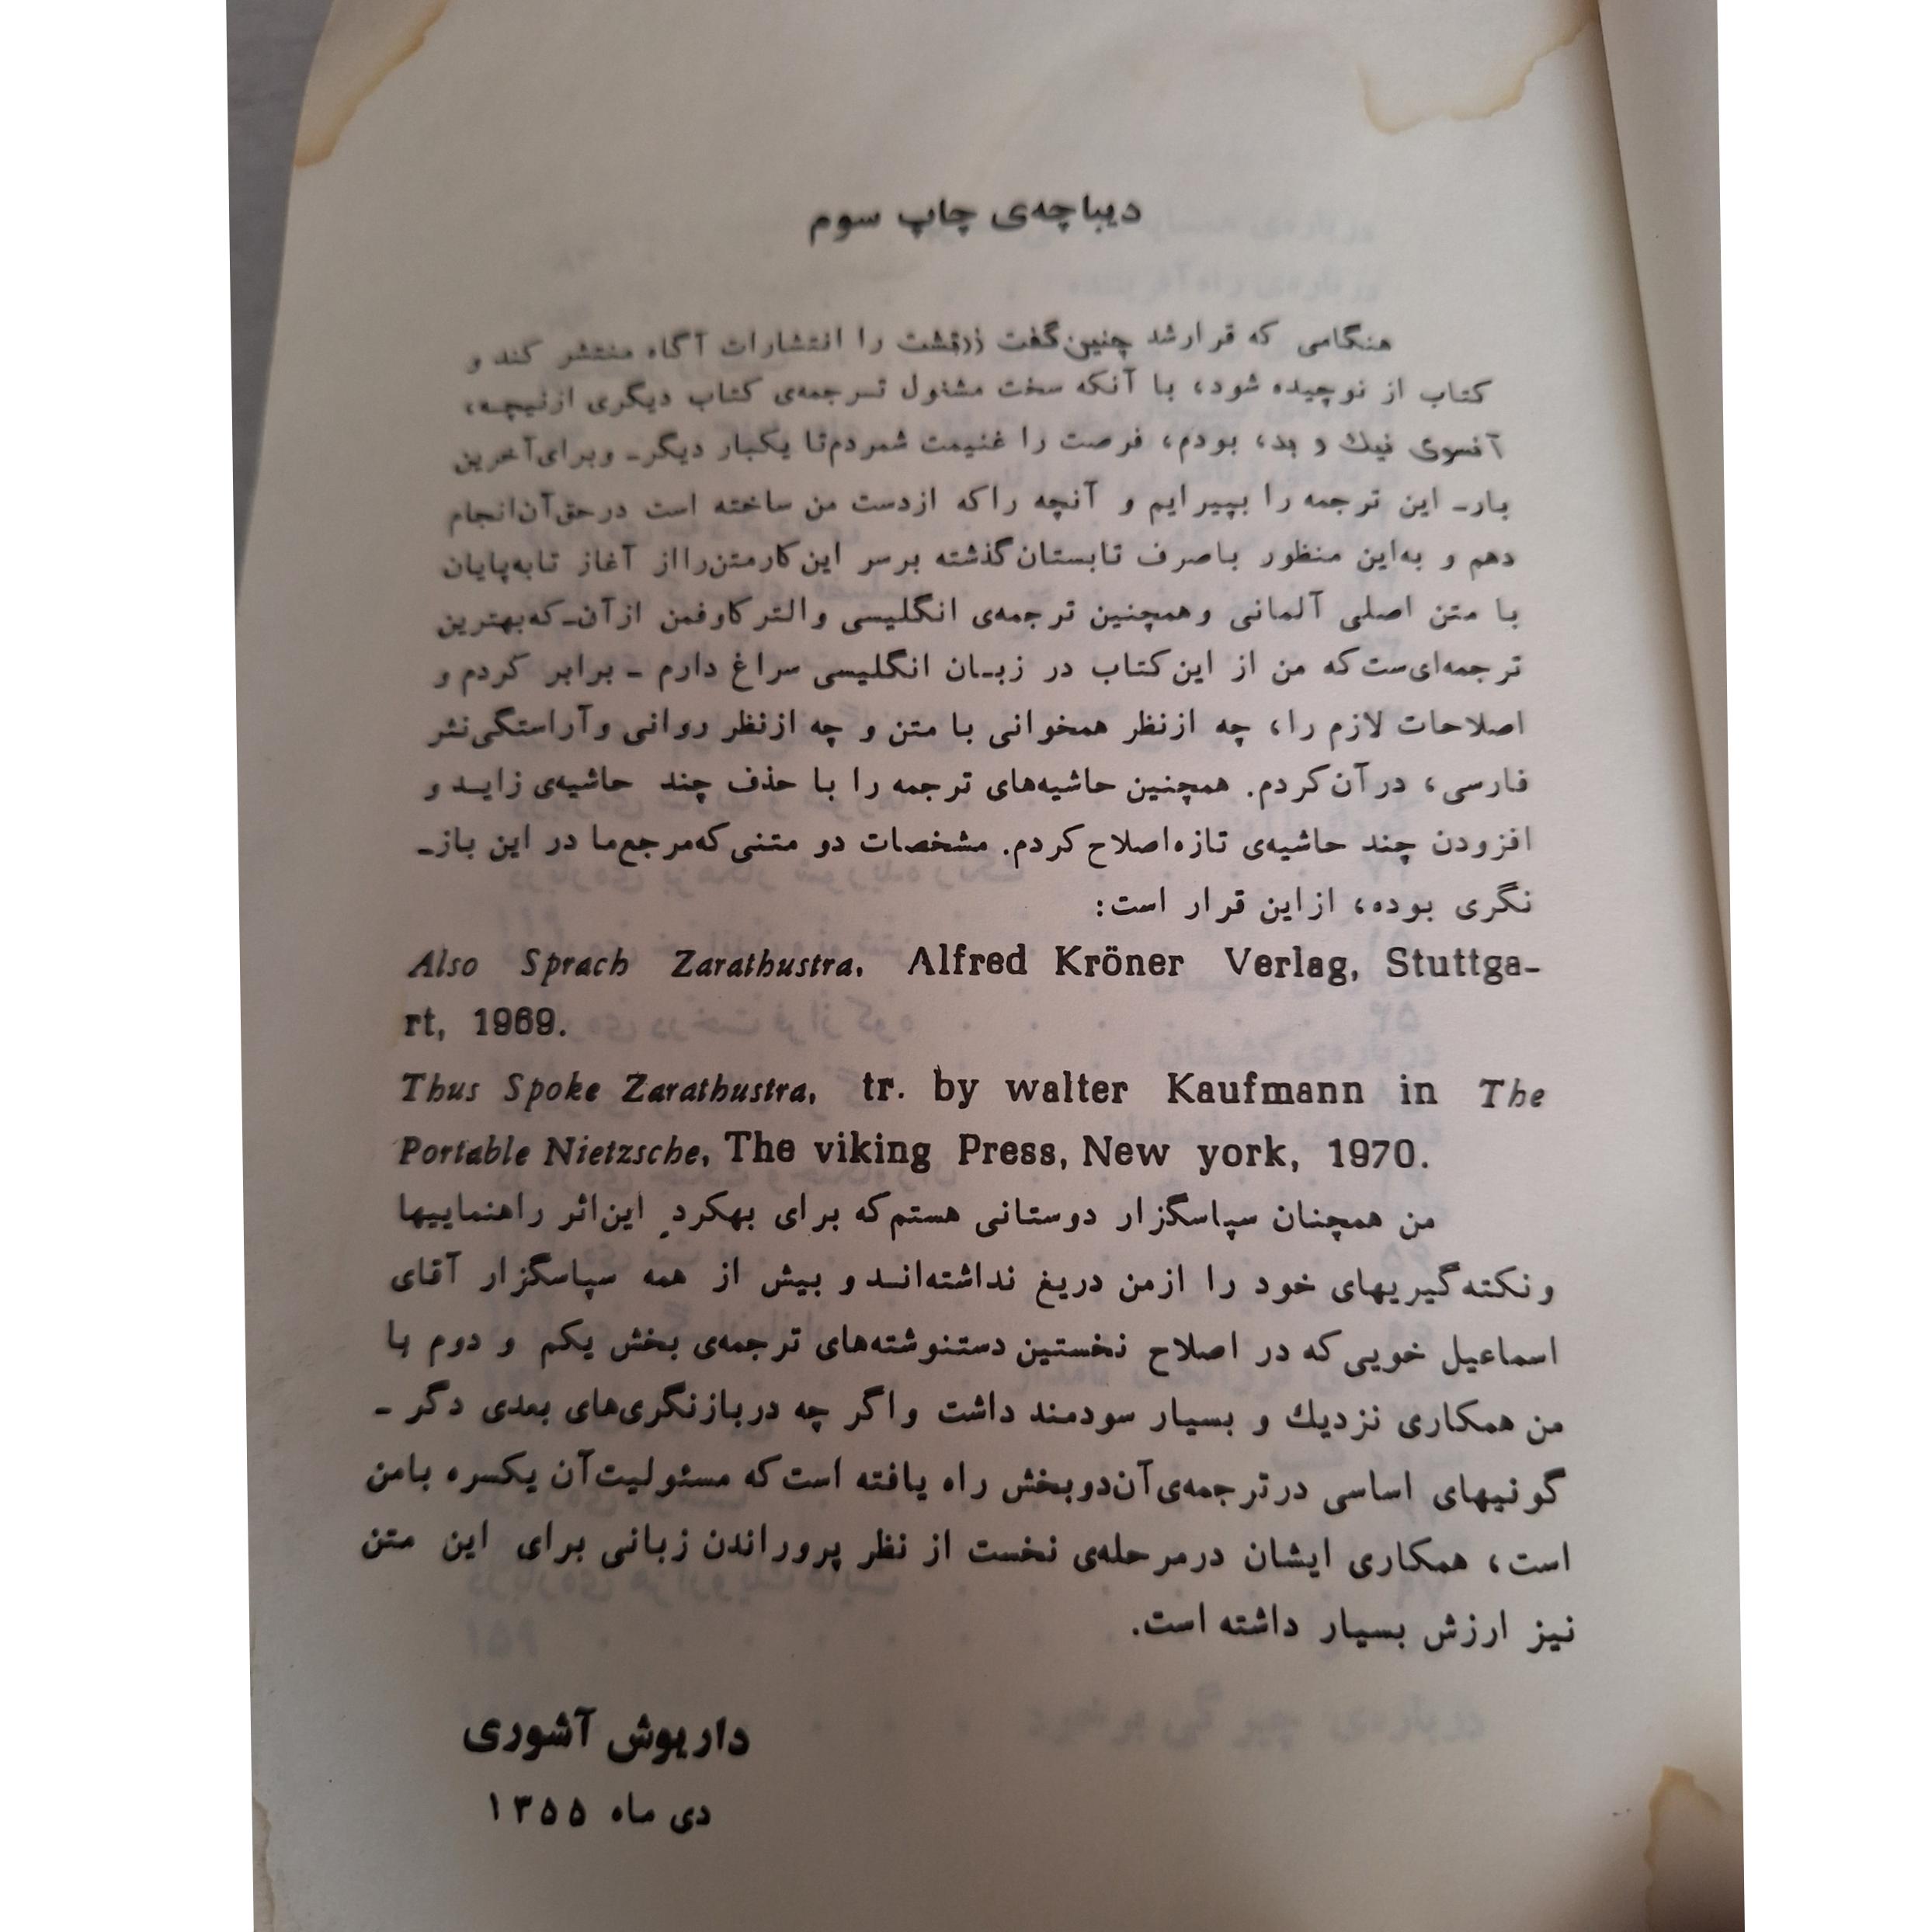 دیباچه‌ی چاپ سوم
هنگامی که قرار شد چنین گفت زرتشت را انتشارات آگاه منتشر کند و
کتاب از نو چیده شود، با آنکه سخت مشغول ترجمه‌ی کتاب دیگری از نیچه،
آنسوی نیك و بد، بودم، فرصت را غنیمت شمردم تا یکبار دیگر ـ و برای آخرین
بار ـ این ترجمه را بپیرایم و آنچه را که از دست من ساخته است در حق آن انجام
دهم و به این منظور با صرف تابستان گذشته بر سر این کار متن را از آغاز تا به پایان
با متن اصلی آلمانی و همچنین ترجمه‌ی انگلیسی والتر کاوفمن از آن ـ که بهترین
ترجمه‌ای‌ست که من از این کتاب در زبان انگلیسی سراغ دارم ـ برابر کردم و
اصلاحات لازم را، چه از نظر همخوانی با متن و چه از نظر روانی و آراستگی نثر
فارسی، در آن کردم. همچنین حاشیه‌های ترجمه را با حذف چند حاشیه‌ی زاید و
افزودن چند حاشیه‌ی تازه اصلاح کردم. مشخصات دو متنی که مرجع ما در این باز ـ
نگری بوده، از این قرار است:
Also Sprach Zarathustra, Alfred Kröner Verlag, Stuttga-
rt, 1969.
Thus Spoke Zarathustra, tr. by walter Kaufmann in The
Portable Nietzsche, The viking Press, New york, 1970.
من همچنان سپاسگزار دوستانی هستم که برای بهکردِ این اثر راهنماییها
و نکته‌گیریهای خود را از من دریغ نداشته‌اند و بیش از همه سپاسگزار آقای
اسماعیل خویی که در اصلاح نخستین دستنوشته‌های ترجمه‌ی بخش یکم و دوم با
من همکاری نزدیك و بسیار سودمند داشت و اگر چه در بازنگری‌های بعدی دگر ـ
گونیهای اساسی در ترجمه‌ی آن دو بخش راه یافته است که مسئولیت آن یکسره با من
است، همکاری ایشان در مرحله‌ی نخست از نظر پروراندن زبانی برای این متن
نیز ارزش بسیار داشته است.
داریوش آشوری
دی ماه ۱۳۵۵